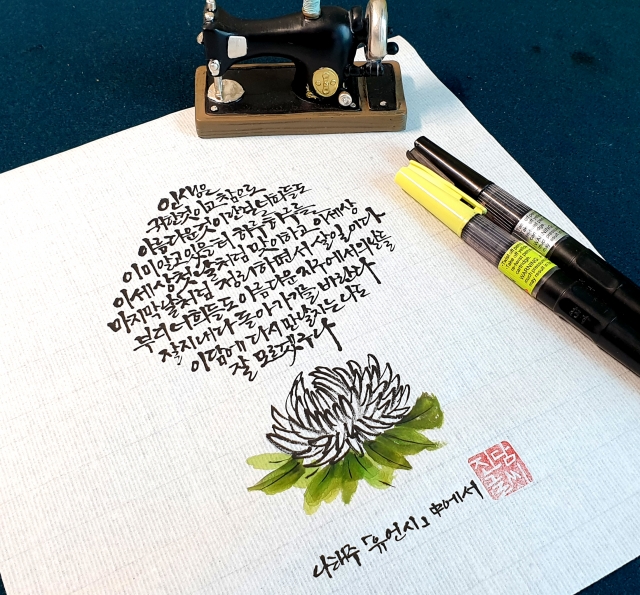 인생은
귀한것이고 참으로
아름다운것이란걸 너희들도
이미 알고 있을터 하루하루를
이세상 첫날처럼 맞이하고 이세상
마지막날처럼 정리하면서 살 일이다
부디 너희들도 아름다운 지구에서의 날들
잘 지내다 돌아가기를 바란다
이담에 다시 만날지는 나도
잘 모르겠구나
나태주 「유언시」 中에서